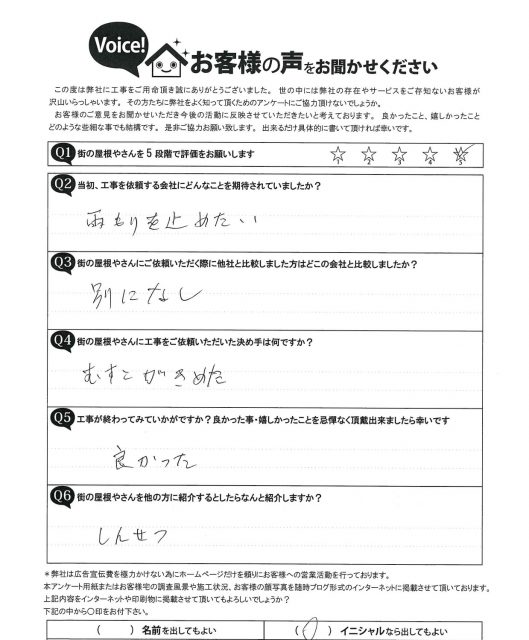 Voice!
お客様の声をお聞かせください
この度は弊社に工事をご用命頂き誠にありがとうございました。 世の中には弊社の存在やサービスをご存知ないお客様が
沢山いらっしゃいます。 その方たちに弊社をよく知って頂くためのアンケートにご協力頂けないでしょうか。
お客様のご意見をお聞かせいただき今後の活動に反映させていただきたいと考えております。 良かったこと、嬉しかったこと
どのような些細な事でも結構です。 是非ご協力お願い致します。 出来るだけ具体的に書いて頂ければ幸いです。
Q1 街の屋根やさんを5段階で評価をお願いします ☆1 ☆2 ☆3 ☆4 ☆5
Q2 当初、工事を依頼する会社にどんなことを期待されていましたか？
雨もりを止めたい
Q3 街の屋根やさんにご依頼いただく際に他社と比較しました方はどこの会社と比較しましたか？
別になし
Q4 街の屋根やさんに工事をご依頼いただいた決め手は何ですか？
むすこがきめた
Q5 工事が終わってみていかがですか？良かった事・嬉しかったことを忌憚なく頂戴出来ましたら幸いです
良かった
Q6 街の屋根やさんを他の方に紹介するとしたらなんと紹介しますか？
しんせつ
＊弊社は広告宣伝費を極力かけない為にホームページだけを頼りにお客様への営業活動を行っております。
本アンケート用紙またはお客様宅の調査風景や施工状況、お客様の顔写真を随時ブログ形式のインターネットに掲載させて頂いております。
上記内容をインターネットや印刷物に掲載させて頂いてもよろしいでしょうか？
下記の中から〇印をお付下さい。
（ ）名前を出してもよい （〇）イニシャルなら出してもよい